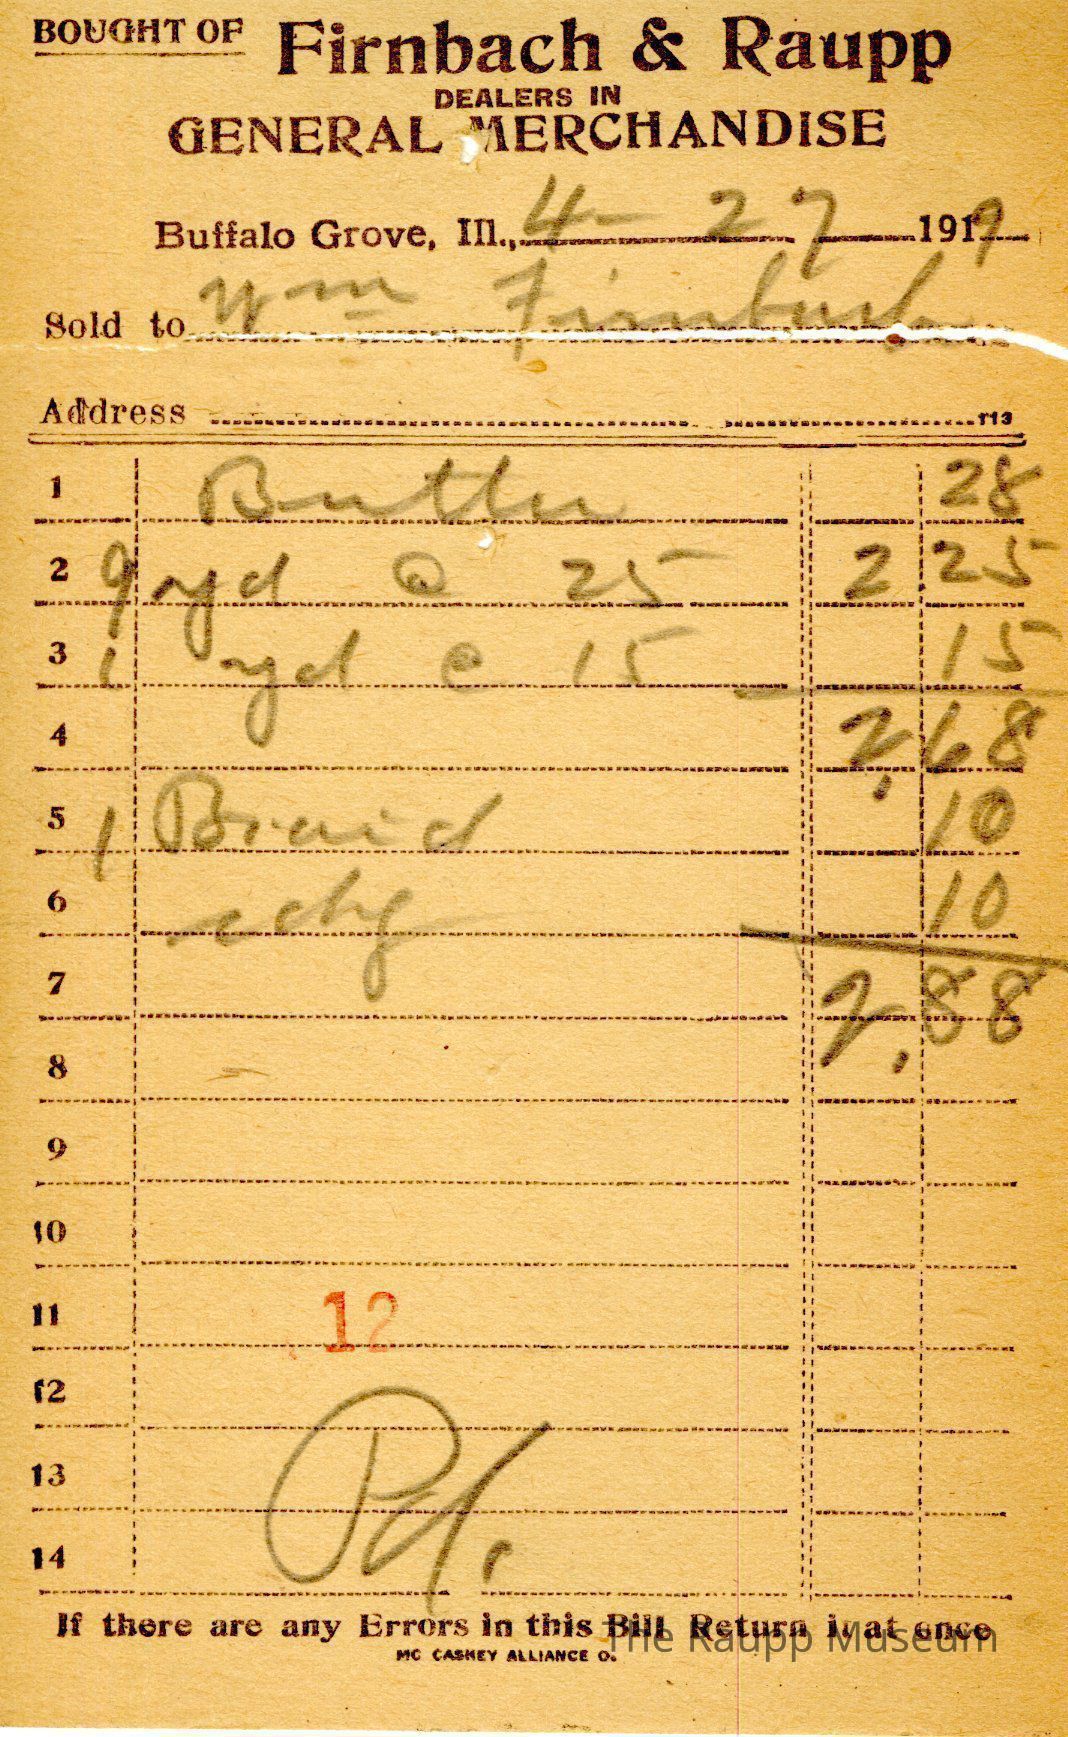 BOUGHT OF Firnbach & Raupp
DEALERS IN
GENERAL MERCHANDISE
Buffalo Grove, Ill., 4-27 1919
Sold to Wm Firnbach
Address 113
1 Butter 28
2 9 yd @ 25 2 25
3 1 yd @ 15 15
4 2,68
5 1 Braid 10
6 edg 10
7 2.88
8
9
10
11 12
12
13 Pd.
14
If there are any Errors in this Bill Return it at once
MC CASKEY ALLIANCE O.
The Raupp Museum